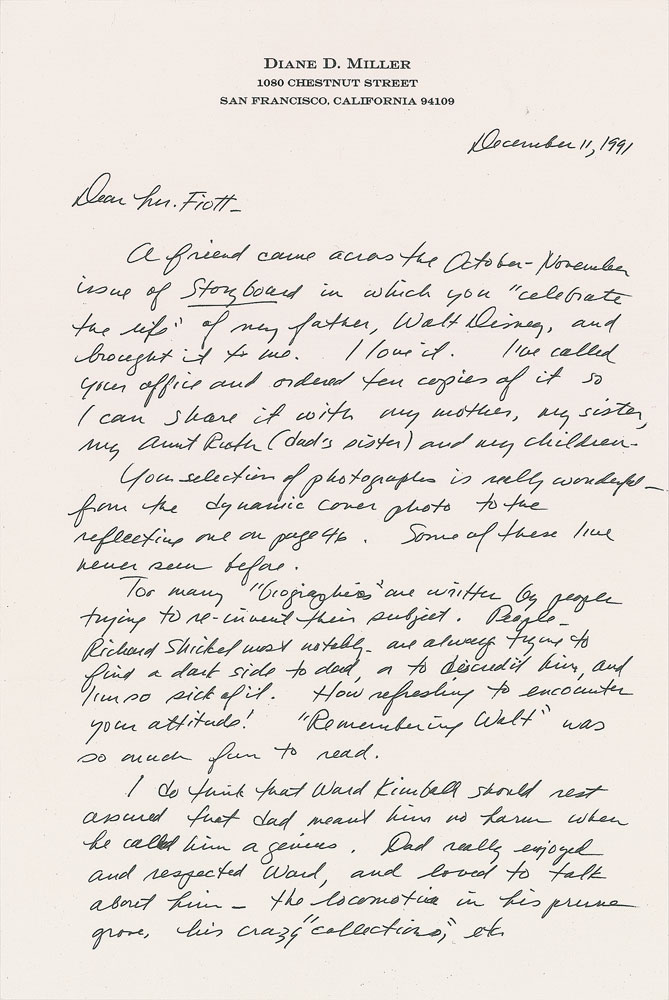 DIANE D. MILLER
1080 CHESTNUT STREET
SAN FRANCISCO, CALIFORNIA 94109
December 11, 1991
Dear Mr. Fiott –
A friend came across the October–November
issue of Storyboard in which you "celebrate
the life" of my father, Walt Disney, and
brought it to me. I love it. I've called
your office and ordered ten copies of it so
I can share it with my mother, my sister,
my Aunt Ruth (dad's sister) and my children.
Your selection of photographs is really wonderful –
from the dynamic cover photo to the
reflecting one on page 46. Some of these I've
never seen before.
Too many "biographies" are written by people
trying to re-invent their subject. People –
Richard Shickel most notably – are always trying to
find a dark side to dad, or to discredit him, and
I'm so sick of it. How refreshing to encounter
your attitude! "Remembering Walt" was
so much fun to read.
I do think that Ward Kimball should rest
assured that dad meant him no harm when
he called him a genius. Dad really enjoyed
and respected Ward, and loved to talk
about him – the locomotive in his prune
grove, his crazy "collections," etc